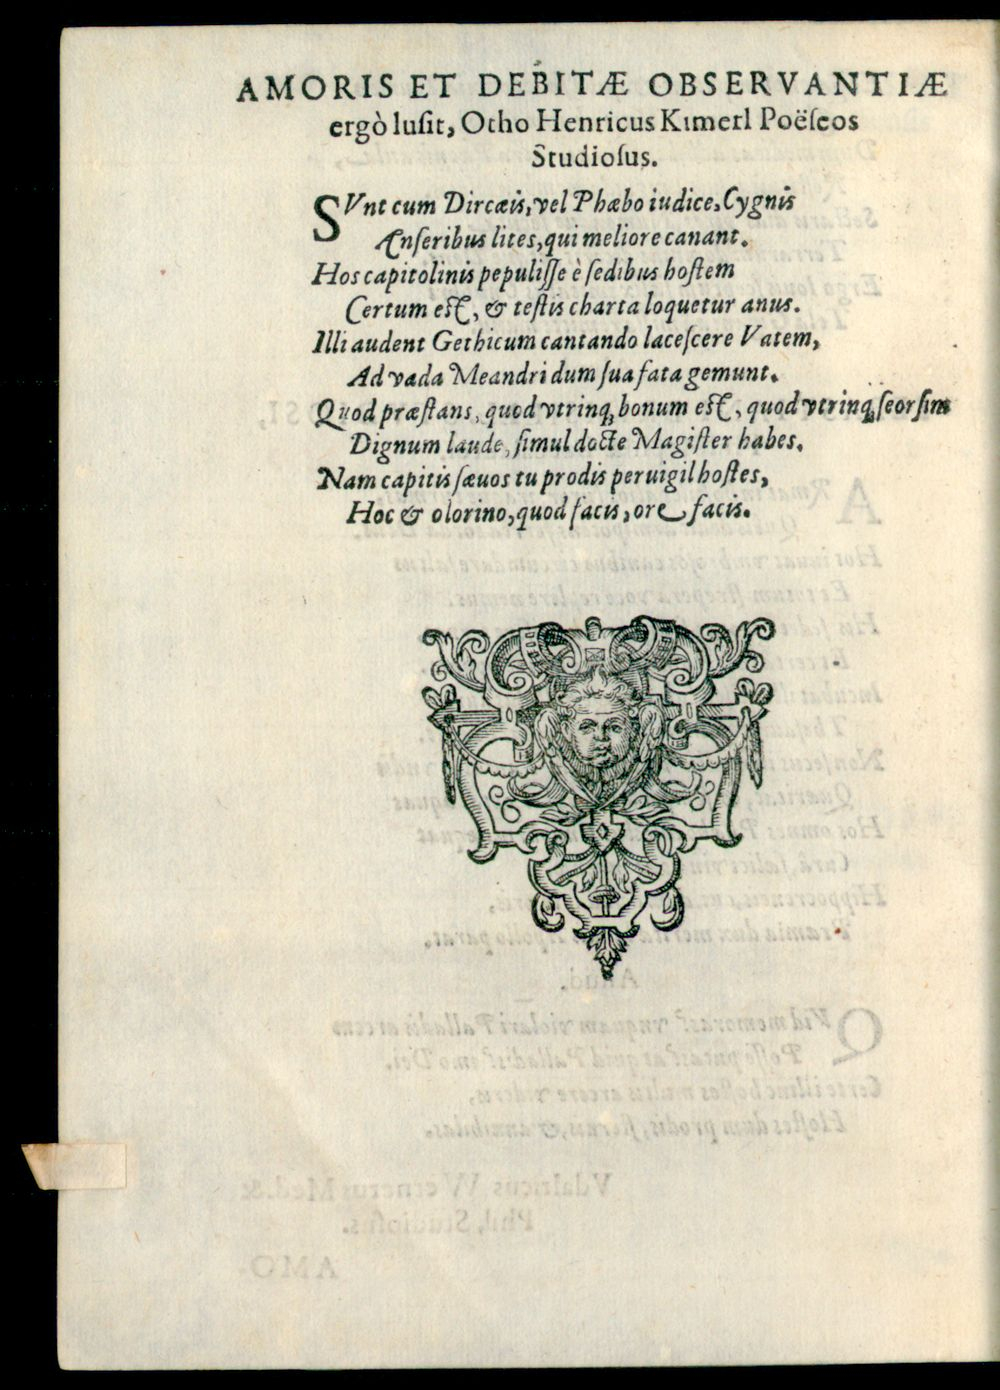 AMORIS ET DEBITÆ OBSERVANTIÆ
ergò luſit, Otho Henricus Kimerl Poëſeos
Studioſus.
SVnt cum Dircæis, vel Phæbo iudice, Cygnis
Anſeribus lites, qui meliore canant.
Hos capitolinis pepuliſſe è ſedibus hoſtem
Certum eſt, & teſtis charta loquetur anus.
Illi audent Gethicum cantando laceſcere Vatem,
Ad vada Meandri dum ſua fata gemunt.
Quod præſtans, quod vtrinq; bonum eſt, quod vtrinq; ſeorſim
Dignum laude, ſimul docte Magiſter habes.
Nam capitis ſævos tu prodis peruigil hoſtes,
Hoc & olorino, quod facis, ore facis.